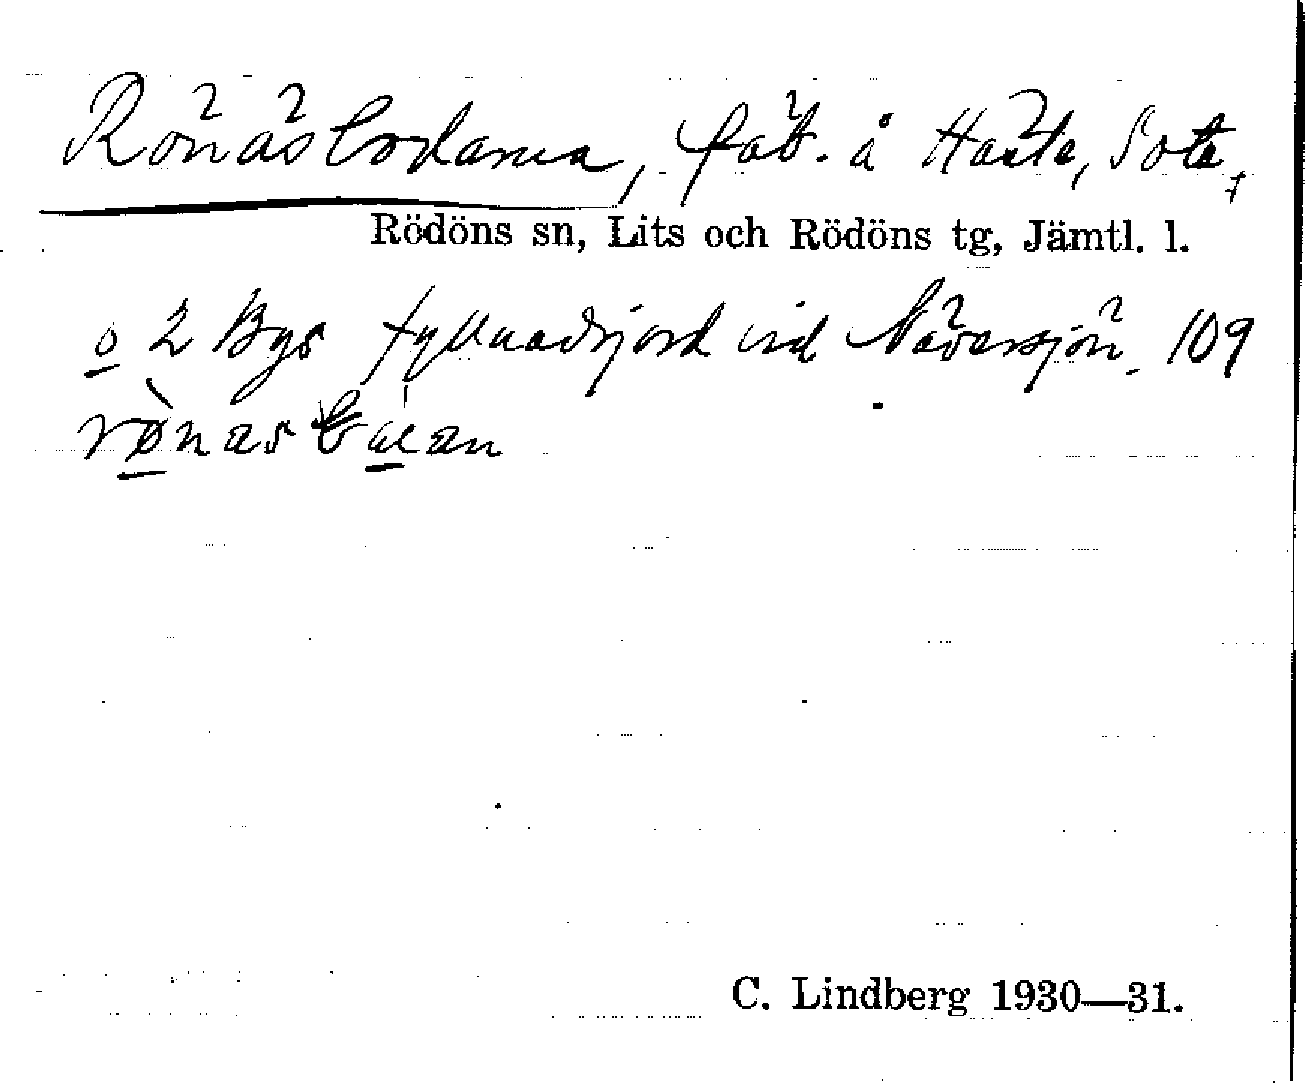 Rönåsbodarna, fäb. å Häste, Sota,
Rödöns sn, Lits och Rödöns tg, Jämtl. l.
o 2 Bys fyllnadsjord vid Näversjön. 109
rønas
C. Lindberg 1930—31.